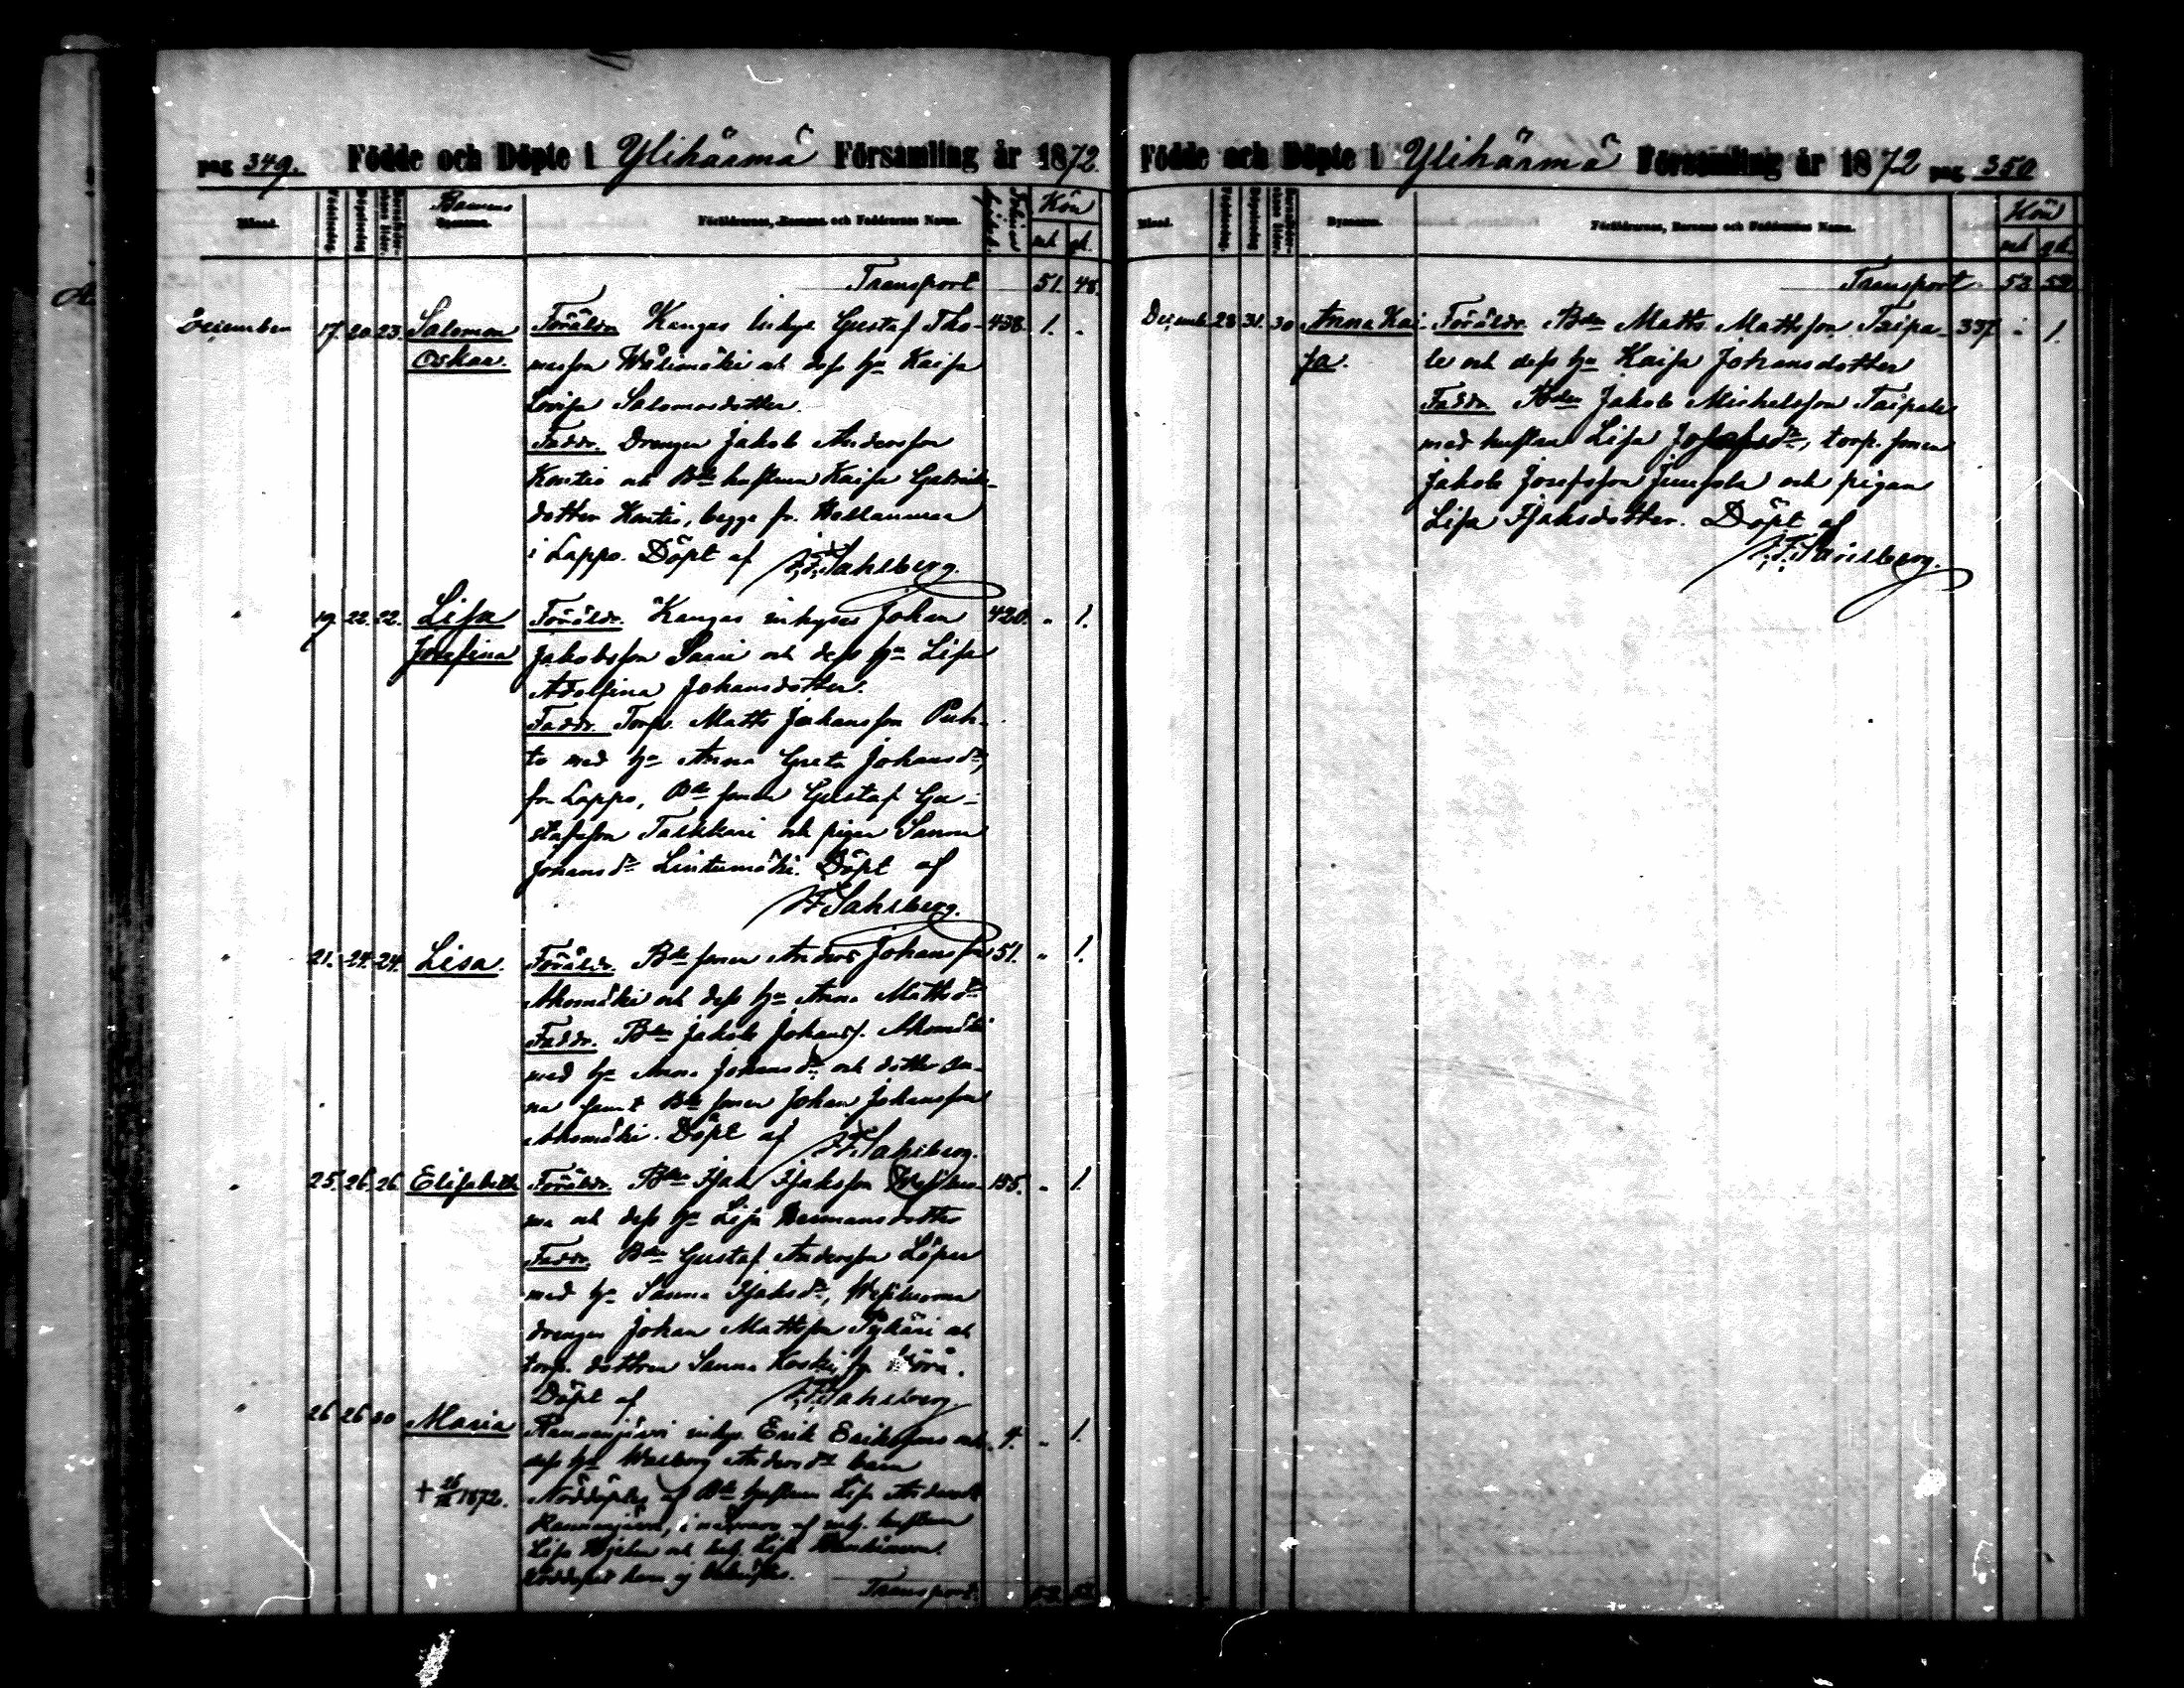 pag 349. Födde och Döpte i Ylihärmä Församling år 1872.
Månad. Födelsedag. Döpelsedag. Barnens Bynamn. Föräldrarnes, Barnens och Faddrarnes Namn. Kön
mk qk.
Transport 51. 48.
December 17. 20. 23. Salomon Föräldr. Kangas inhys. Gustaf Tho- 438. 1. "
Oskar. masson Wälimäki och dess h:u Kaisa
Lovisa Salomonsdotter.
Faddr. Drengen Jakob Andersson
Kontio och B:de hustrun Kaisa Gabriels-
dotter Kontio, begge fr.
i Lappo. Döpt af F. F. Sahlberg.
" 19. 22. 22. Lisa Föräldr. Kangas inhyses Johan 420. " 1.
Josefina Jakobsson Saari och dess h:u Lisa
Adolfina Johansdotter.
Faddr. Torp. Matts Johansson Puh-
to med h:u Anna Greta Johansd:r,
fr. Lappo, B:de sonen Gustaf Gu-
stafsson Takkari och pigan Sanna
Johansd:r Lintumäki. Döpt af
F. Sahlberg.
" 21. 24. 24. Lisa. Föräldr. B:de sonen Anders Johansson 51. " 1.
Ahomäki och dess h:u Anna Mattsd:r
Faddr. B:den Jakob Johanss. Ahomäki
med h:u Anna Johansd:r och dotter San-
na samt B:de sonen Johan Johansson
Ahomäki. Döpt af F. F. Sahlberg.
" 25. 26. 26. Elisabeth Föräldr. B:den Isak Isaksson 155. " 1.
ma och dess h:u Lisa Hermansdotter
Faddr. B:den Gustaf Andersson Löper
med h:u Sanna Isaksd:r,
drengen Johan Mattsson och
torp. dottren Sanna Koski,
Döpt af F. F. Sahlberg.
" 26 26 30 Maria Rannanjärvi inhys. Erik Eriksson och 4. " 1.
dess h:u Walborg Andersd:r barn
+ 26/12 1872. Nöddöptes af B:de hustrun Lisa Andersd:r
Rannanjärvi, i närvaro af inh. hustrun
Lisa och inh. Lisa
Nöddopet
Transport. 52. 52
Födde och Döpte i Ylihärmä Församling år 1872 pag 350
Månad. Födelsedag. Döpelsedag. Bynamn. Föräldrarnes, Barnens och Faddrarnes Namn. Kön
mk qk.
Transport 52 52
Decemb. 28 31. 30 Anna Kai- Föräldr. B:den Matts Mattsson Taipa- 337 " 1.
sa. le och dess h:u Kaisa Johansdotter
Faddr. B:den Jakob Michelsson Taipale
med hustrun Lisa Josefsd:r, torp. sonen
Jakob Josefsson och pigan
Lisa Isaksdotter. Döpt af
F. F. Sahlberg.